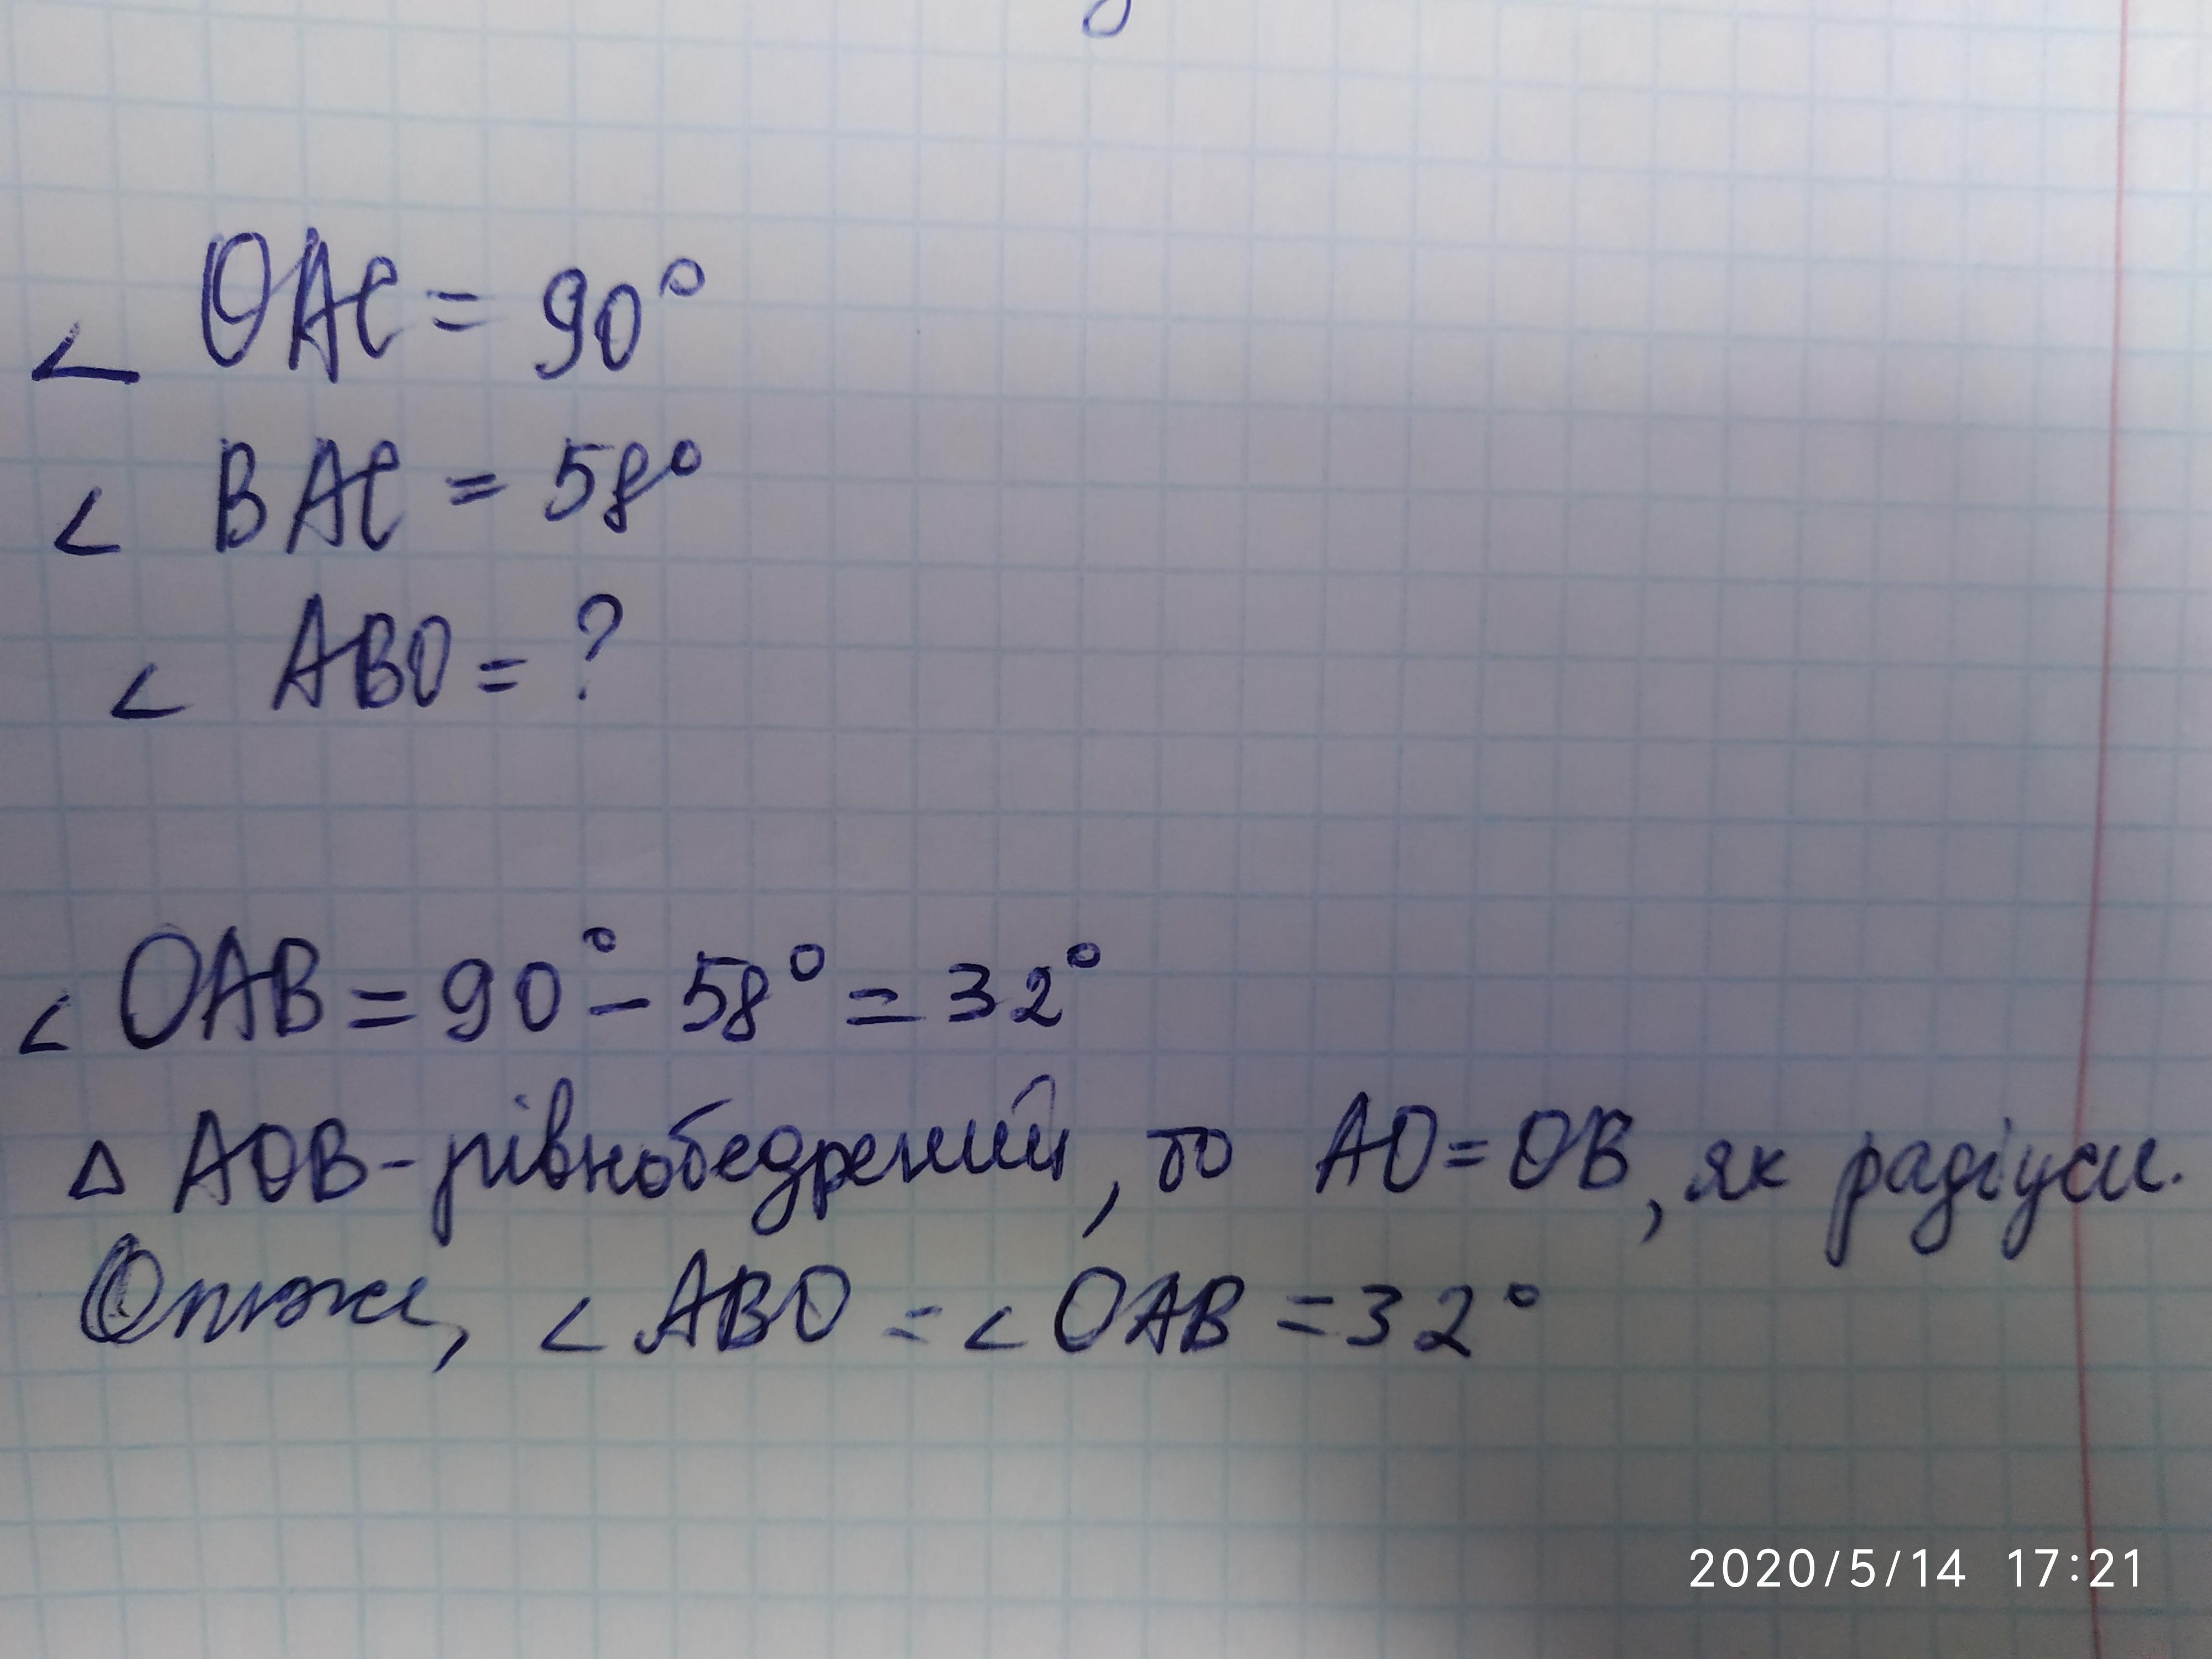 ∠ OAC = 90°
∠ BAC = 58°
∠ ABO = ?
∠ OAB = 90° - 58° = 32°
Δ AOB - рівнобедрений, то AO = OB, як радіуси.
Отже, ∠ ABO = ∠ OAB = 32°
2020/5/14 17:21